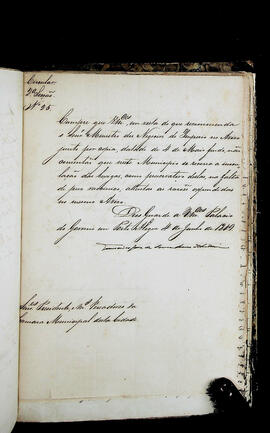 Circular
2ª Secção
Nº 25
Cumpre que Vmces, em vista do que recommenda
o Senr Ministro dos Negocios do Imperio no Aviso
junto por copia, datado de 4 de Maio findo, não
que neste Municipio se recorra a
das como preservativo dellas, na falta
de pus vaccinico, attentas as rasões expendidas
no mesmo Aviso.
Deos Guarde a Vmces Palacio
do Governo em Porto Alegre 4 de Junho de 1849.
Snres Presidente, e Mais Vereadores da
Camara Municipal desta Cidade